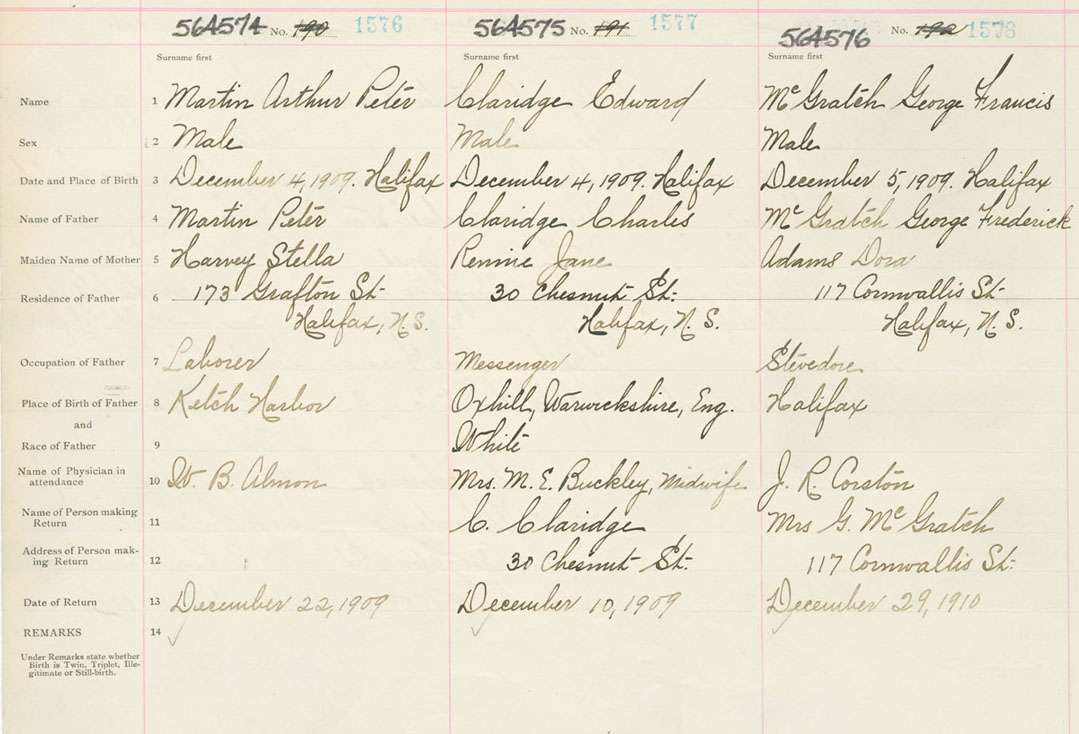 564574 No. 190 1576 564575 No. 191 1577 564576 No. 192 1578
Surname first Surname first Surname first
Name 1 Martin Arthur Peter Claridge Edward McGratch George Francis
Sex 2 Male Male Male
Date and Place of Birth 3 December 4, 1909. Halifax December 4, 1909. Halifax December 5, 1909. Halifax
Name of Father 4 Martin Peter Claridge Charles McGratch George Frederick
Maiden Name of Mother 5 Harvey Stella Rennie Jane Adams Dora
Residence of Father 6 173 Grafton St. 30 Chesnut St. 117 Cornwallis St.
Halifax, N.S. Halifax, N.S. Halifax, N.S.
Occupation of Father 7 Laborer Messenger Stevedore
Place of Birth of Father 8 Ketch Harbor Oxhill, Warwickshire, Eng. Halifax
and
Race of Father 9 White
Name of Physician in
attendance 10 W. B. Almon Mrs. M. E. Buckley, Midwife J. R. Corston
Name of Person making
Return 11 C. Claridge Mrs G. McGratch
Address of Person mak-
ing Return 12 30 Chesnut St. 117 Cornwallis St.
Date of Return 13 December 22, 1909 December 10, 1909 December 29, 1910
REMARKS 14
Under Remarks state whether
Birth is Twin, Triplet, Ille-
gitimate or Still-birth.